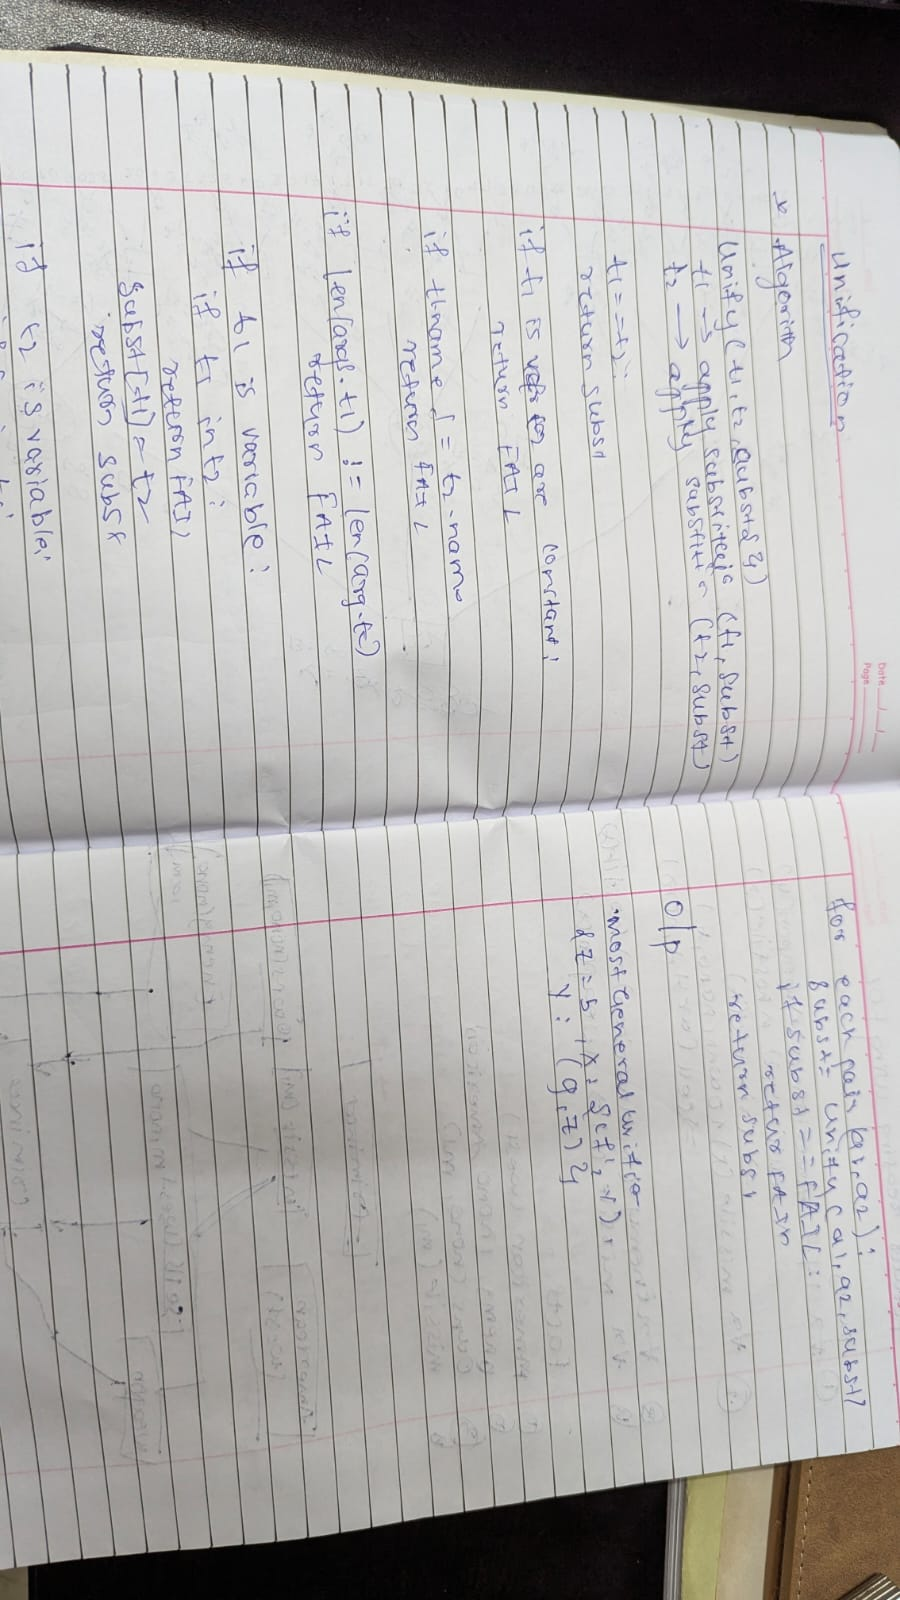 Unification
Date
Page
* Algorithm
Unify (t1, t2, subst{})
t1 → apply substitu (t1, subst)
t2 → apply subst (t2, subst)
t1 == t2:
return subst
if t1 is are constant:
return FAIL
if t1.name != t2.name
return FAIL
if len(arg.t1) != len(arg.t2)
return FAIL
if t1 is variable:
if t1 in t2:
return FAIL
subst[t1] = t2
return subst
if t2 is variable:
for each pair (a1, a2):
subst = unify(a1, a2, subst)
if subst == FAIL:
return FAIL
return subst
O/P
Most General unifier
{Z = b, X:
Y: (g, Z)}